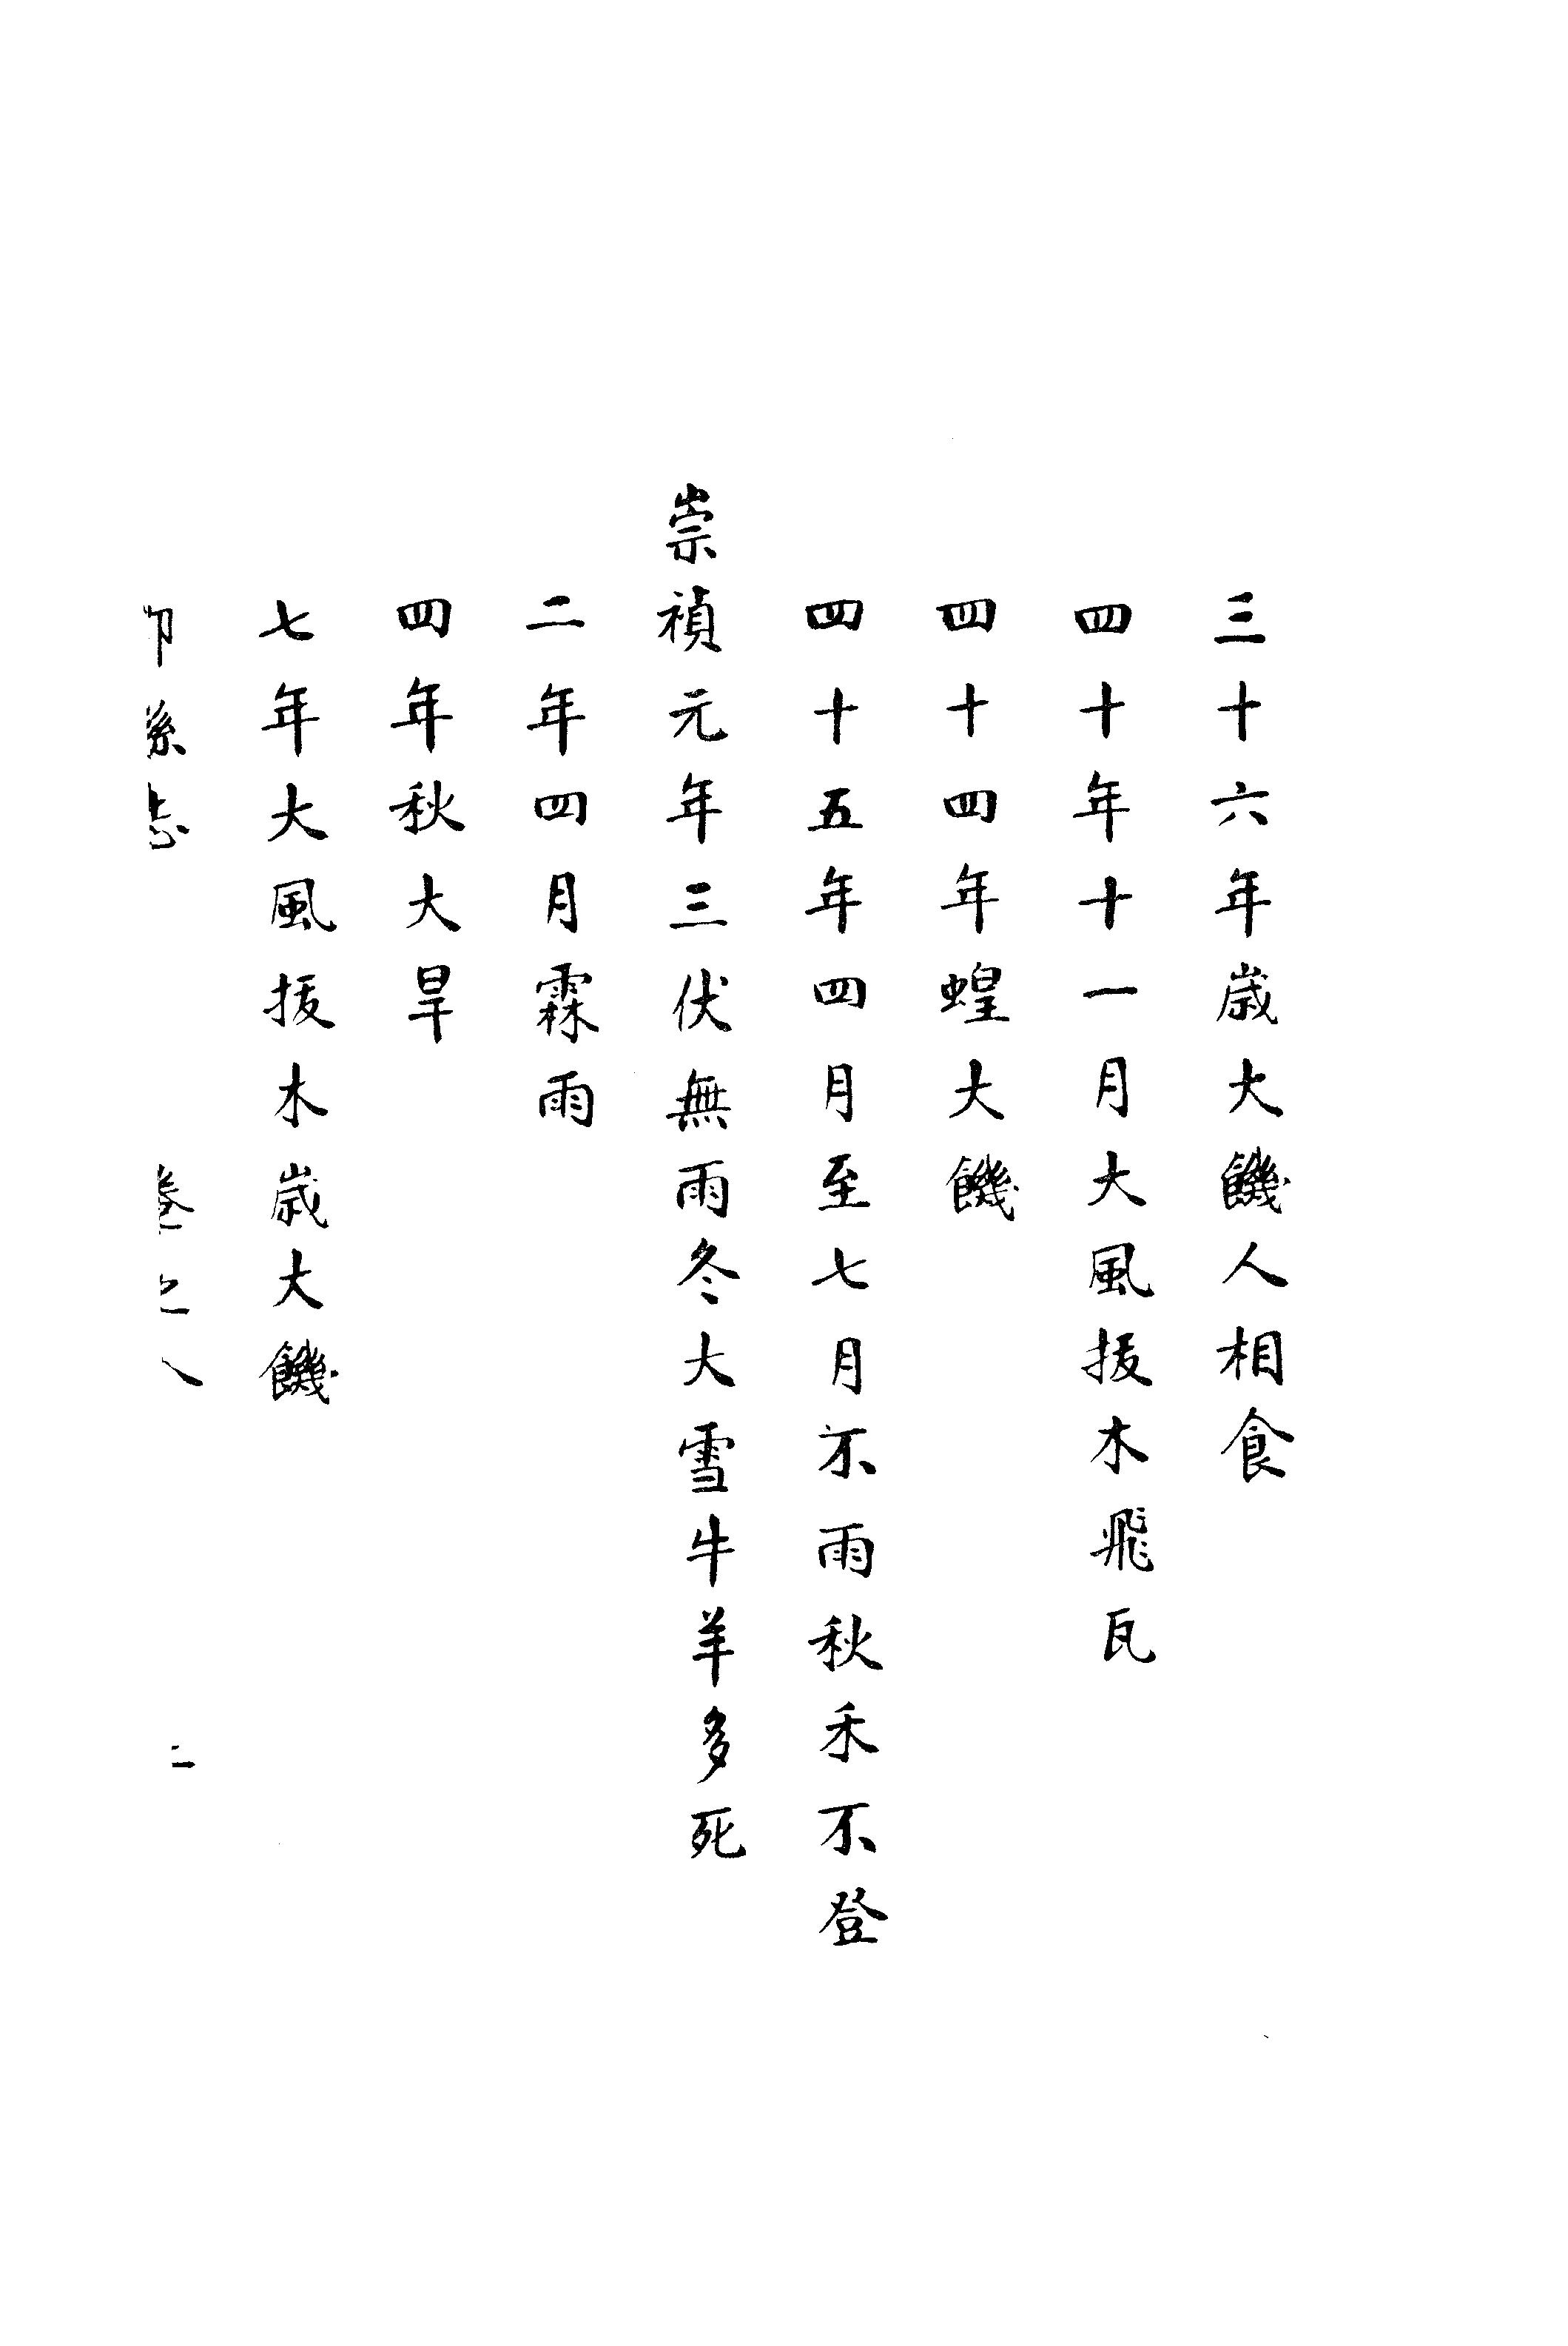 三十六年歲大饑人相食
四十年十一月大風拔木飛瓦
四十四年蝗大饑
四十五年四月至七月不雨秋禾不登
崇禎元年三伏無雨冬大雪牛羊多死
二年四月霖雨
四年秋大旱
七年大風拔木歲大饑
志 卷之八 二